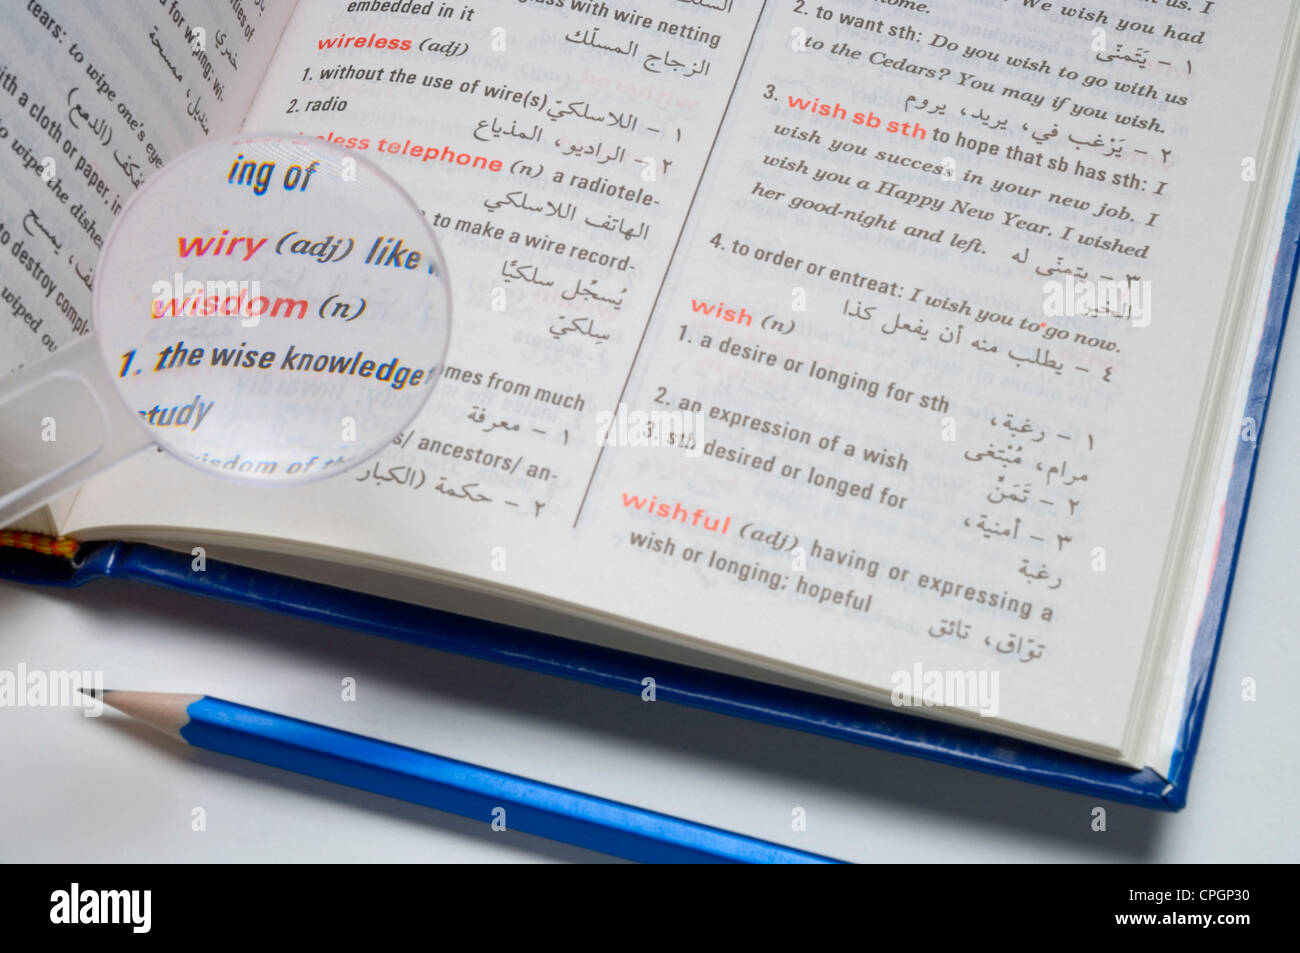 ties of
for wiping: wi-
خري
منديل، ممسحة
tears: to wipe one's eye
with a cloth or paper, in
(الدمع)
to wipe the dishes
يمسح
to destroy comple
wiped ou
glass with wire netting
embedded in it
الزجاج المسلّك
wireless (adj)
1. without the use of wire(s)
١ – اللاسلكيّ
2. radio
٢ – الراديو، المذياع
less telephone (n) a radiotele-
الهاتف اللاسلكي
to make a wire record-
يُسجّل سلكيًّا
سِلكيّ
ing of
wiry (adj) like
wisdom (n)
1. the wise knowledge
omes from much
study
١ – معرفة
wisdom of th
s/ ancestors/ an-
٢ – حكمة (الكبار
us. I
come. We wish you had
١ – يَتَمنّى
2. to want sth: Do you wish to go with us
to the Cedars? You may if you wish.
٢ – يَرْغب في، يريد، يروم
3. wish sb sth to hope that sb has sth: I
wish you success in your new job. I
wish you a Happy New Year. I wished
her good-night and left.
٣ – يتمنّى له
الخير
4. to order or entreat: I wish you to go now.
٤ – يطلب منه أن يفعل كذا
wish (n)
1. a desire or longing for sth
١ – رغبة،
مرام، مُبْتغى
2. an expression of a wish
٢ – تَمَنٍّ
3. sth desired or longed for
٣ – أمنية،
رغبة
wishful (adj) having or expressing a
wish or longing; hopeful
توّاق، تائق
a
alamy
alamy
Image ID: CPGP30
www.alamy.com
alamy stock photo